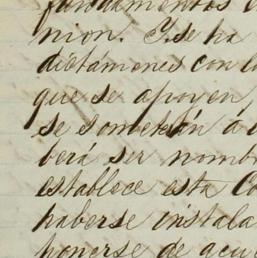 fundamentos
nion. Y se ha
dictámenes con l
que se apoyen
se someterán á
berá ser nomb
establece esta Co
haberse instala
ponerse de acu